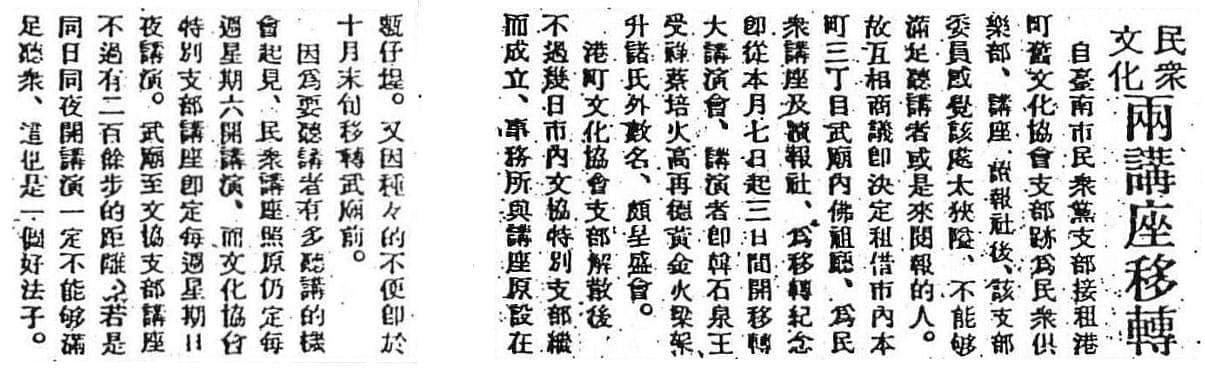 民衆
文化
兩講座移轉
自臺南市民衆黨支部接租港
町舊文化協會支部跡爲民衆供
樂部、講座、讀報社後、該支部
委員感覺該處太狹隘、不能够
滿足聽講者或是來閱報的人。
故互相商議卽決定租借市內本
町三丁目武廟內佛祖廳、爲民
衆講座及讀報社、爲移轉紀念
卽從本月七日起三日間開移轉
大講演會、講演者卽韓石泉王
受祿蔡培火高再德黃金火梁架
升諸氏外數名、頗呈盛會。
港町文化協會支部解散後
不過幾日市內文協特別支部繼
而成立、事務所與講座原設在
仔埕。又因種々的不便卽於
十月末旬移轉武廟前。
因爲要聽講者有多聽講的機
會起見、民衆講座照原仍定每
週星期六開講演、而文化協會
特別支部講座卽定每週星期日
夜講演。武廟至文協支部講座
不過有二百餘步的距離、若是
同日同夜開講演一定不能够滿
足聽衆、這也是一個好法子。